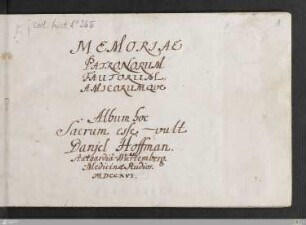 Cod. hist. 4° 266
1
MEMORIAE
PATRONORUM
FAUTORUM
AMICORUMQUE
Album hoc
Sacrum esse vult
Daniel Hoffman.
Medicinæ Studios.
MDCCXVI.